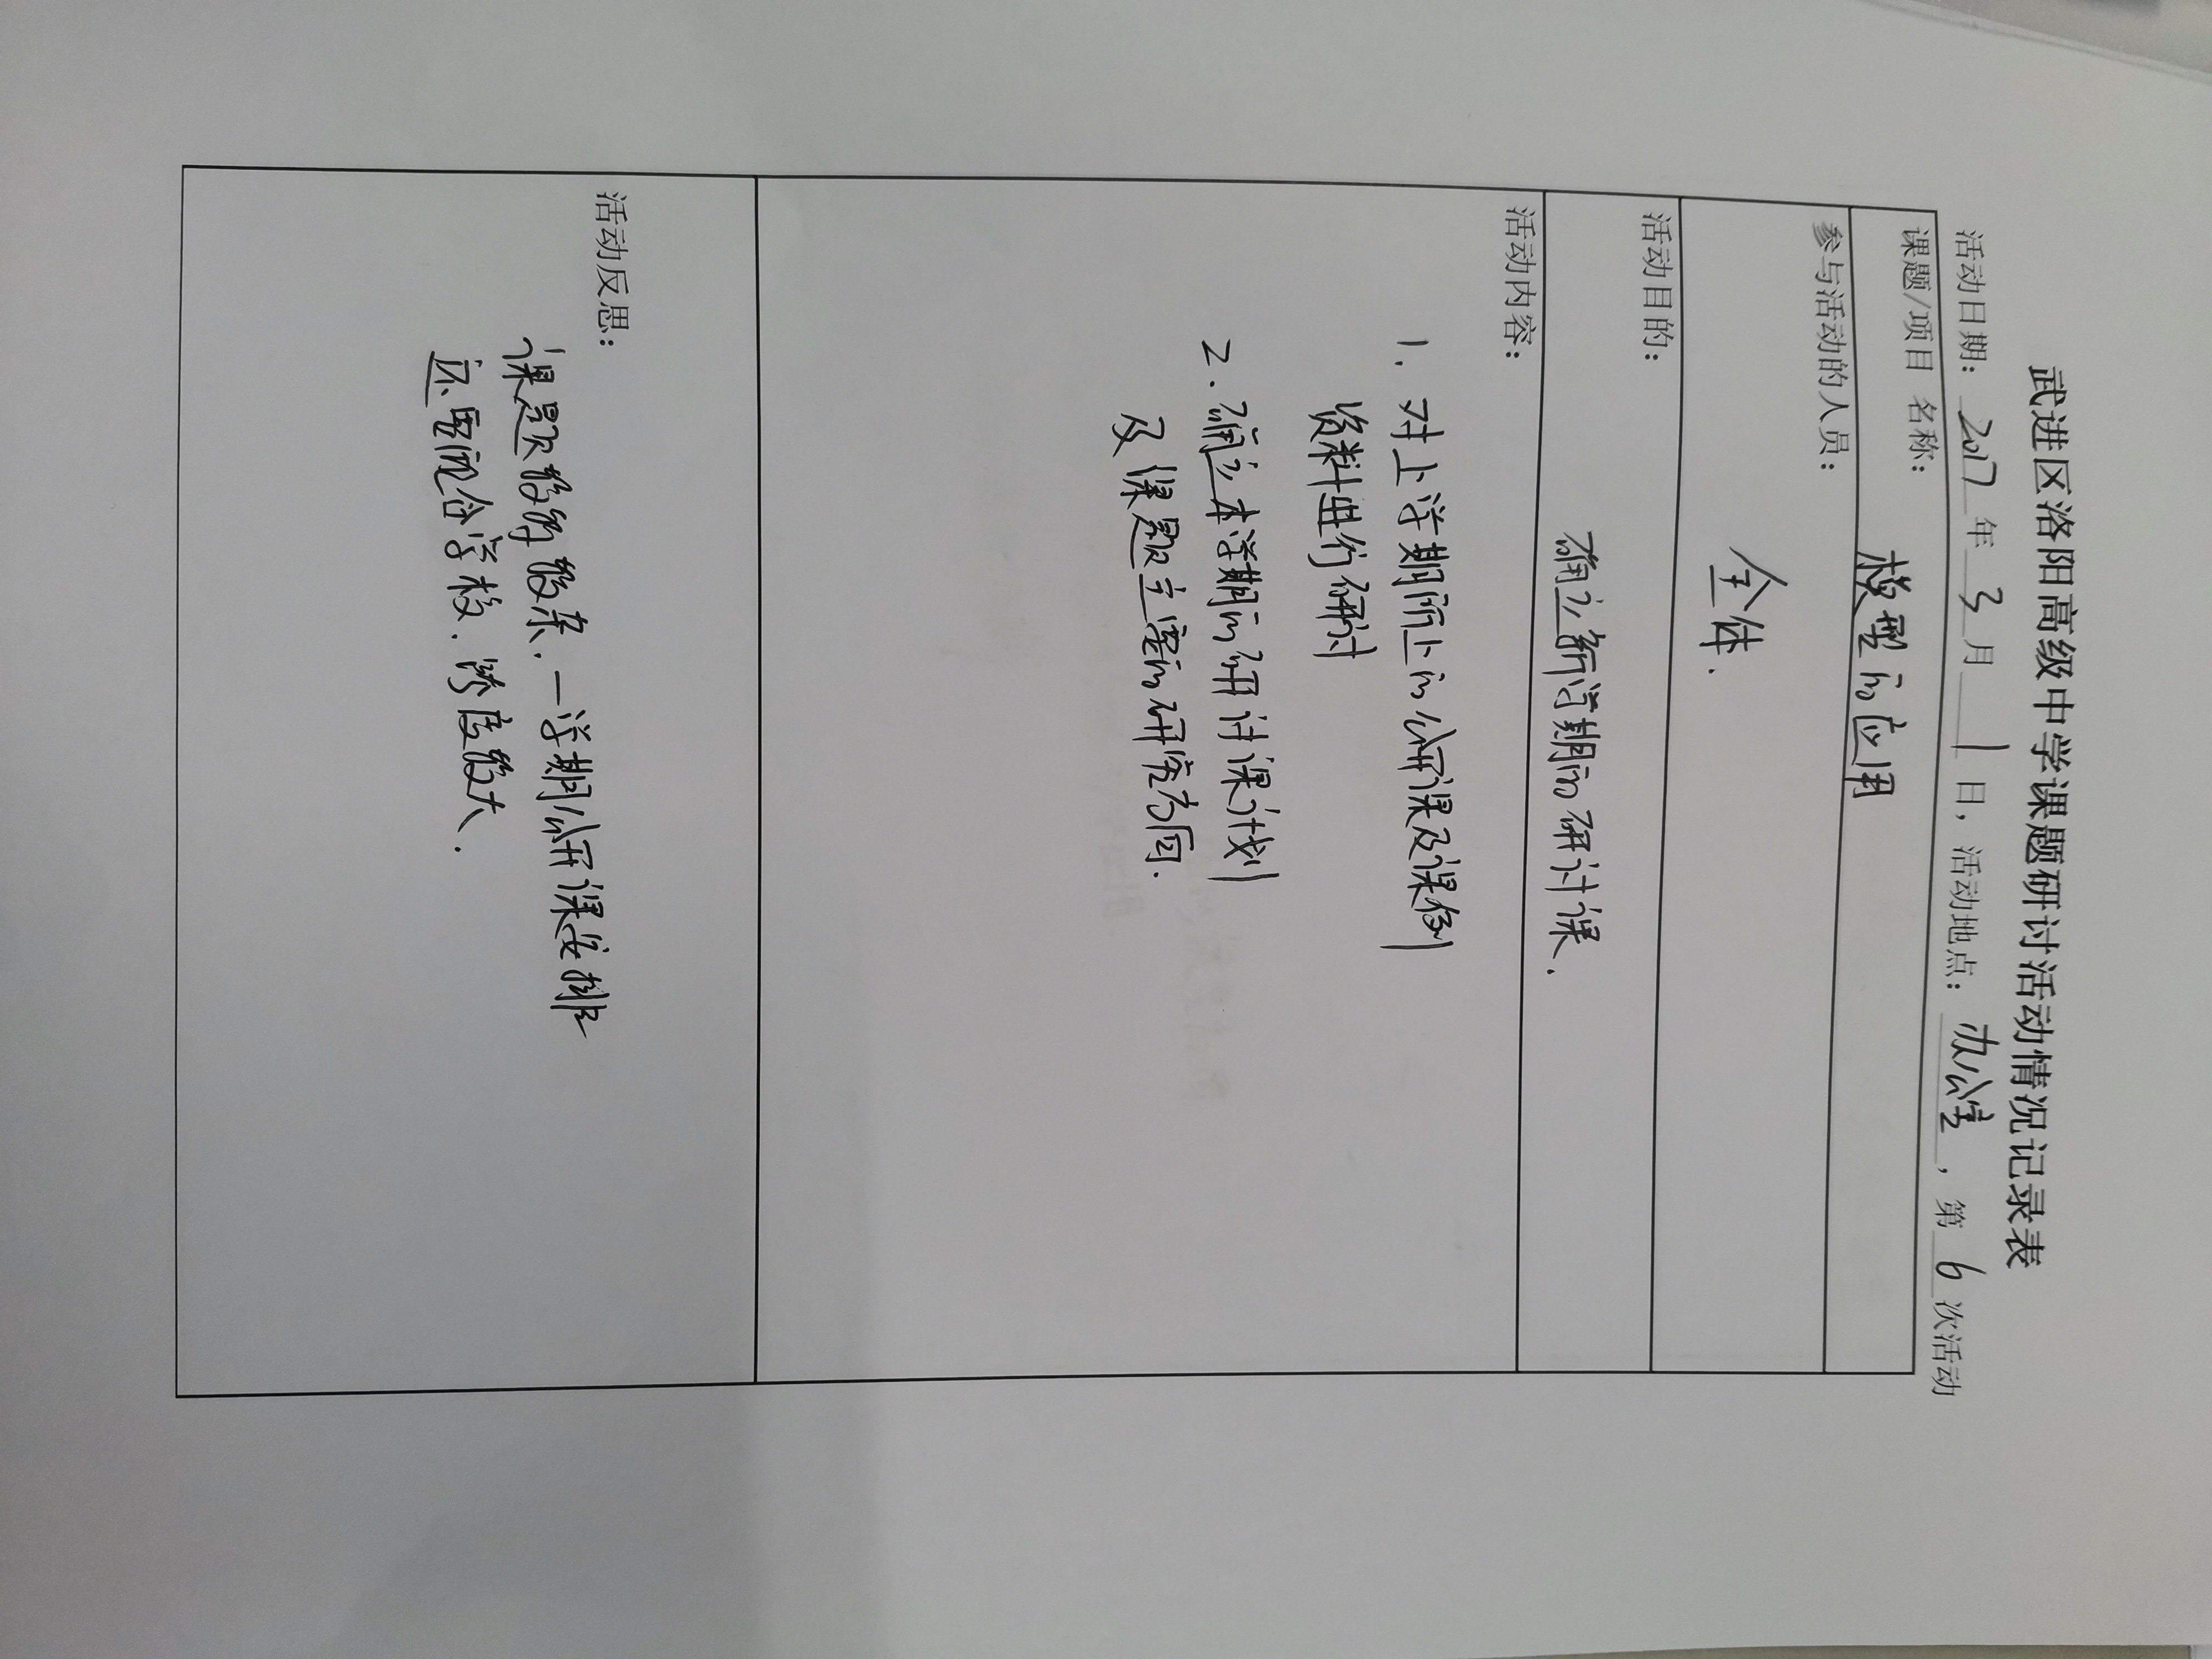 武进区洛阳高级中学课题研讨活动情况记录表
活动日期：2017年3月1日，活动地点：办公室，第6次活动
课题/项目 名称：模型的应用
参与活动的人员：
全体.
活动目的：
确立新学期的研讨课.
活动内容：
1. 对上学期所上的公开课及课例
资料进行研讨
2. 确立本学期的研讨课计划
及课题主要的研究方向.
活动反思：
课题较多较杂. 一学期公开课安排
还要配合学校. 跨度较大.